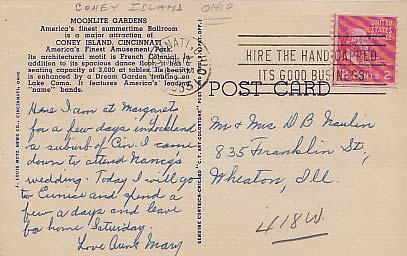 CONEY ISLAND OHIO
MOONLITE GARDENS
America's finest summertime Ballroom
is a major attraction of
CONEY ISLAND, CINCINNATI,
America's Finest Amusement Park.
Its architectural motif is French Colonial. In
addition to its spacious dance floor, it has a
seating capacity of 3,000 at tables. Its beauty
is enhanced by a Dream Garden fronting on
Lake Como. It features America's leading
"name" bands.
Here I am at Margaret
for a few days in Lockland
a suburb of Cin. I came
down to attend Nancy's
wedding. Today I will go
to Eunice and spend a
few days and leave
for home Saturday.
Love Aunt Mary
HIRE THE HANDICAPPED
ITS GOOD BUSINESS
UNITED STATES
CENTS 2
POST CARD
Mr & Mrs D B Naulin
835 Franklin St,
Wheaton, Ill.
418 W.